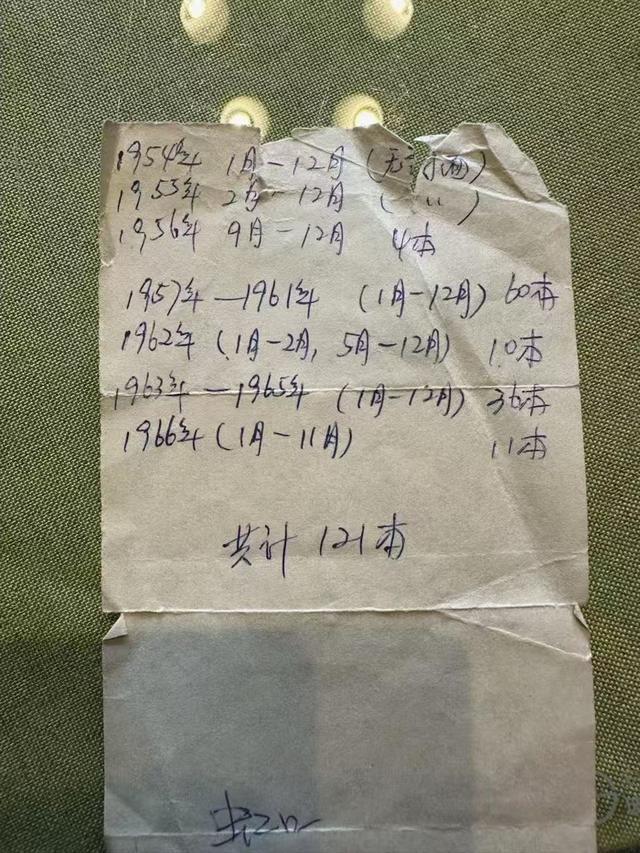 1954年 1月－12月 (无封面)
1955年 2月－12月 ( 〃 )
1956年 9月－12月 4本
1957年－1961年 (1月－12月) 60本
1962年 (1月－2月, 5月－12月) 10本
1963年－1965年 (1月－12月) 36本
1966年 (1月－11月) 11本
共计 121本